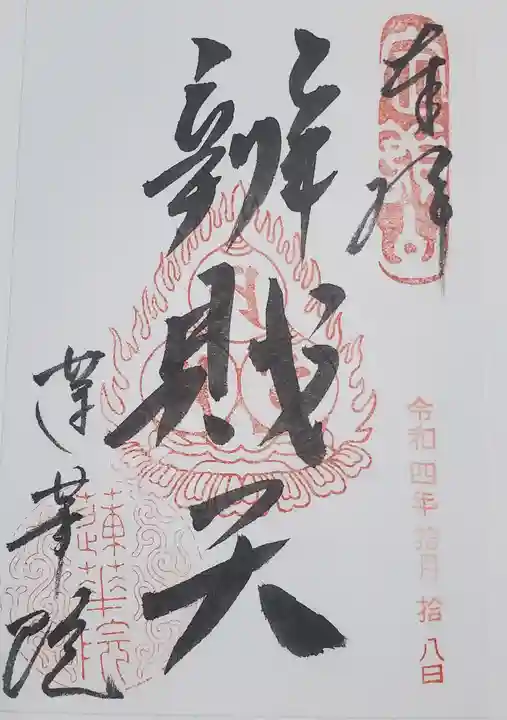 奉拝
令和四年拾月拾八日
辨財天
蓮華院
蓮華院